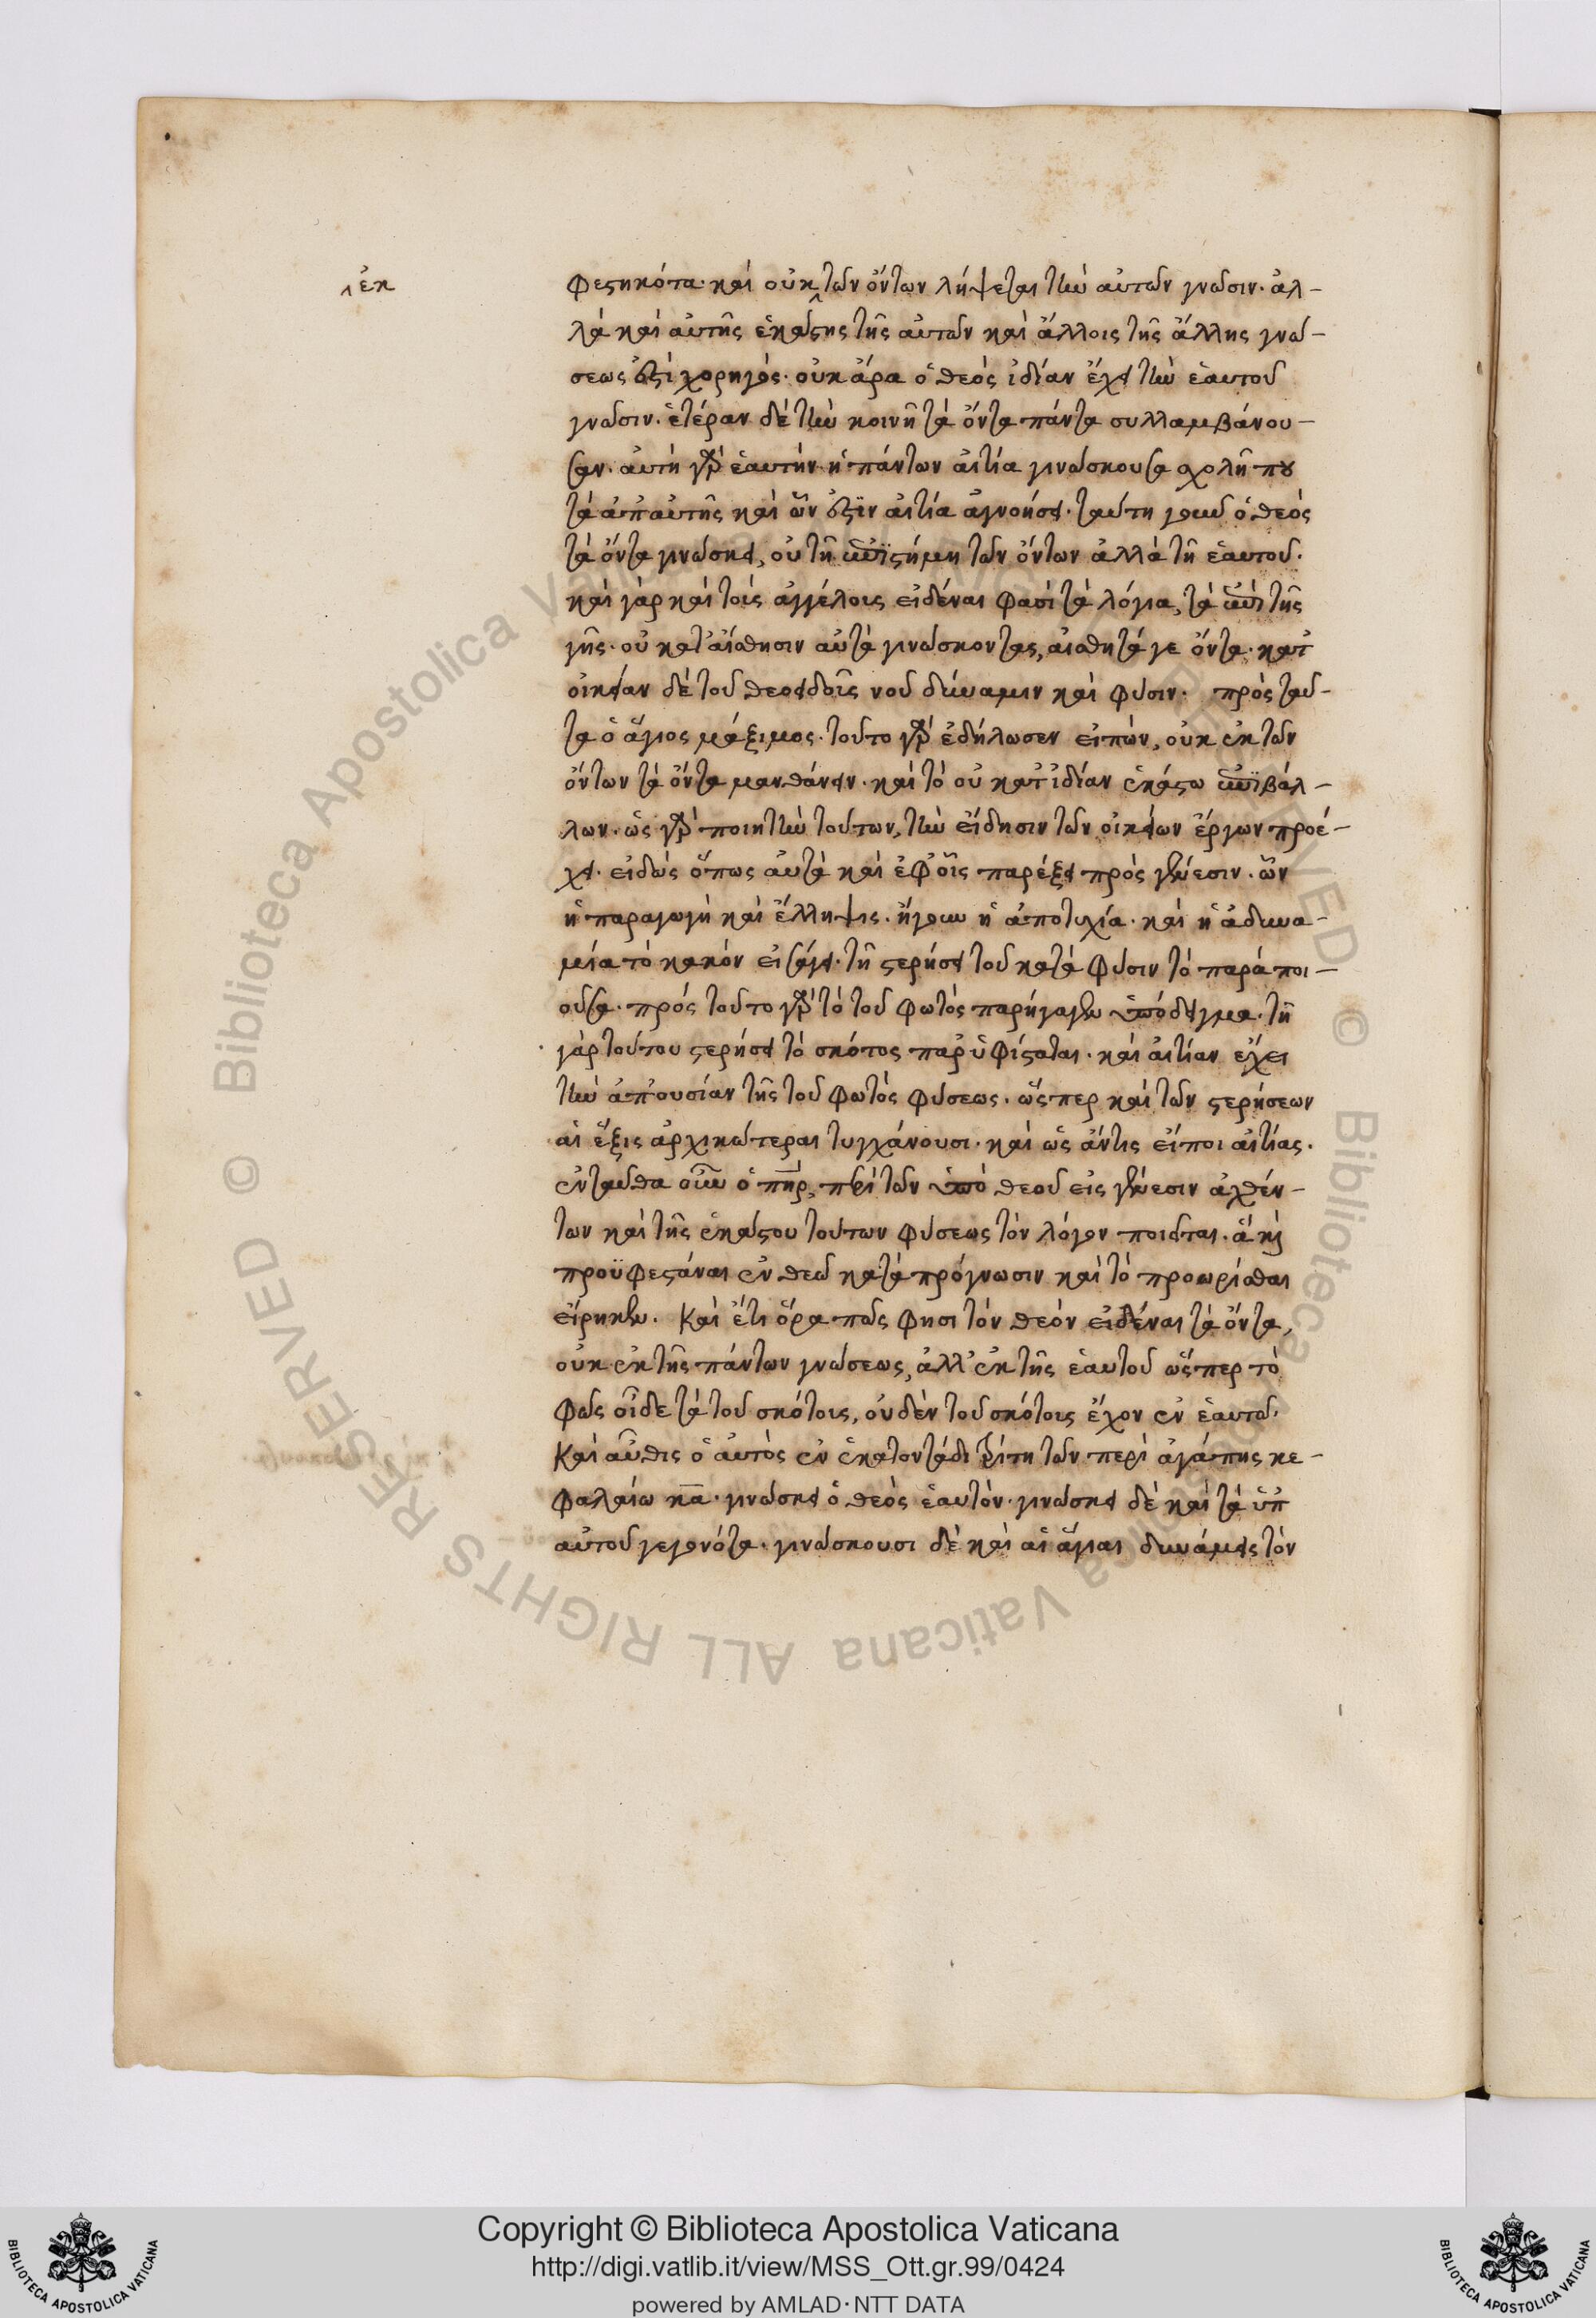 ἐκ
φεστηκότα· καὶ οὐκ τῶν ὄντων λήψεται τὴν αὐτῶν γνῶσιν· ἀλ-
λὰ καὶ αὐτῆς ἑκάστης τῆς αὐτῶν καὶ ἄλλοις τῆς ἄλλης γνώ-
σεως ἐστὶ χορηγός· οὐκ ἄρα ὁ θεὸς ἰδίαν ἔχει τὴν ἑαυτοῦ
γνῶσιν· ἑτέραν δὲ τὴν κοινῇ τὰ ὄντα πάντα συλλαμβάνου-
σαν· αὐτὴ γὰρ ἑαυτὴν ἡ πάντων αἰτία γινώσκουσα σχολῇ που
τὰ ἀπ' αὐτῆς καὶ ὧν ἐστὶν αἰτία ἀγνοήσει· ταύτῃ γοῦν ὁ θεὸς
τὰ ὄντα γινώσκει, οὐ τῇ ἐπιστήμῃ τῶν ὄντων ἀλλὰ τῇ ἑαυτοῦ·
καὶ γὰρ καὶ τοὺς ἀγγέλους εἰδέναι φασὶ τὰ λόγια, τὰ ἐπὶ τῆς
γῆς· οὐ κατ' αἴσθησιν αὐτὰ γινώσκοντας, αἰσθητά γε ὄντα· κατ'
οἰκείαν δὲ τοῦ θεοειδοῦς νοῦ δύναμιν καὶ φύσιν· πρὸς ταῦ-
τα ὁ ἅγιος μάξιμος· τοῦτο γὰρ ἐδήλωσεν εἰπών, οὐκ ἐκ τῶν
ὄντων τὰ ὄντα μανθάνειν· καὶ τὸ οὐ κατ' ἰδίαν ἑκάστω ἐπιβάλ-
λων· ὡς γὰρ ποιητὴν τούτων, τὴν εἴδησιν τῶν οἰκείων ἔργων προέ-
χει· εἰδὼς ὅπως αὐτὰ καὶ ἐφ' οἷς παρέξει πρὸς γένεσιν· ὧν
ἡ παραγωγὴ καὶ ἔλληψις· ἤγουν ἡ ἀποτυχία· καὶ ἡ ἀδυνα-
μία τὸ κακὸν εἰσάγει· τῇ στερήσει τοῦ κατὰ φύσιν τὸ παρὰ ποι-
οῦσα· πρὸς τοῦτο γὰρ τὸ τοῦ φωτὸς παρήγαγεν ὑπόδειγμα· τῇ
γὰρ τούτου στερήσει τὸ σκότος παρυφίσταται· καὶ αἰτίαν ἔχει
τὴν ἀπουσίαν τῆς τοῦ φωτὸς φύσεως· ὥσπερ καὶ τῶν στερήσεων
αἱ ἕξις ἀρχικώτεραι τυγχάνουσι· καὶ ὡς ἄν τις εἴποι αἰτίας·
ἐνταῦθα οὖν ὁ πηρ, περὶ τῶν ὑπὸ θεοῦ εἰς γένεσιν ἀχθέν-
των καὶ τῆς ἑκάστου τούτων φύσεως τὸν λόγον ποιεῖται· ἃ καὶ
προϋφεστάναι ἐν θεῶ κατὰ πρόγνωσιν καὶ τὸ προωρίσθαι
εἴρηκεν· Καὶ ἔτι ὅρα πῶς φησὶ τὸν θεὸν εἰδέναι τὰ ὄντα,
οὐκ ἐκ τῆς πάντων γνώσεως, ἀλλ' ἐκ τῆς ἑαυτοῦ ὥσπερ τὸ
φῶς οἶδε τὰ τοῦ σκότους, οὐδὲν τοῦ σκότους ἔχον ἐν ἑαυτῶ·
Καὶ αὖθις ὁ αὐτὸς ἐν ἑκατοντάδι τρίτη τῶν περὶ ἀγάπης κε-
φαλαίω κα· γινώσκει ὁ θεὸς ἑαυτόν· γινώσκει δὲ καὶ τὰ ὑπ'
αὐτοῦ γεγονότα· γινώσκουσι δὲ καὶ αἱ ἅγιαι δυνάμεις τὸν
© Biblioteca Apostolica Vaticana ALL RIGHTS RESERVED
Copyright © Biblioteca Apostolica Vaticana
http://digi.vatlib.it/view/MSS_Ott.gr.99/0424
powered by AMLAD·NTT DATA
BIBLIOTECA APOSTOLICA VATICANA
BIBLIOTECA APOSTOLICA VATICANA